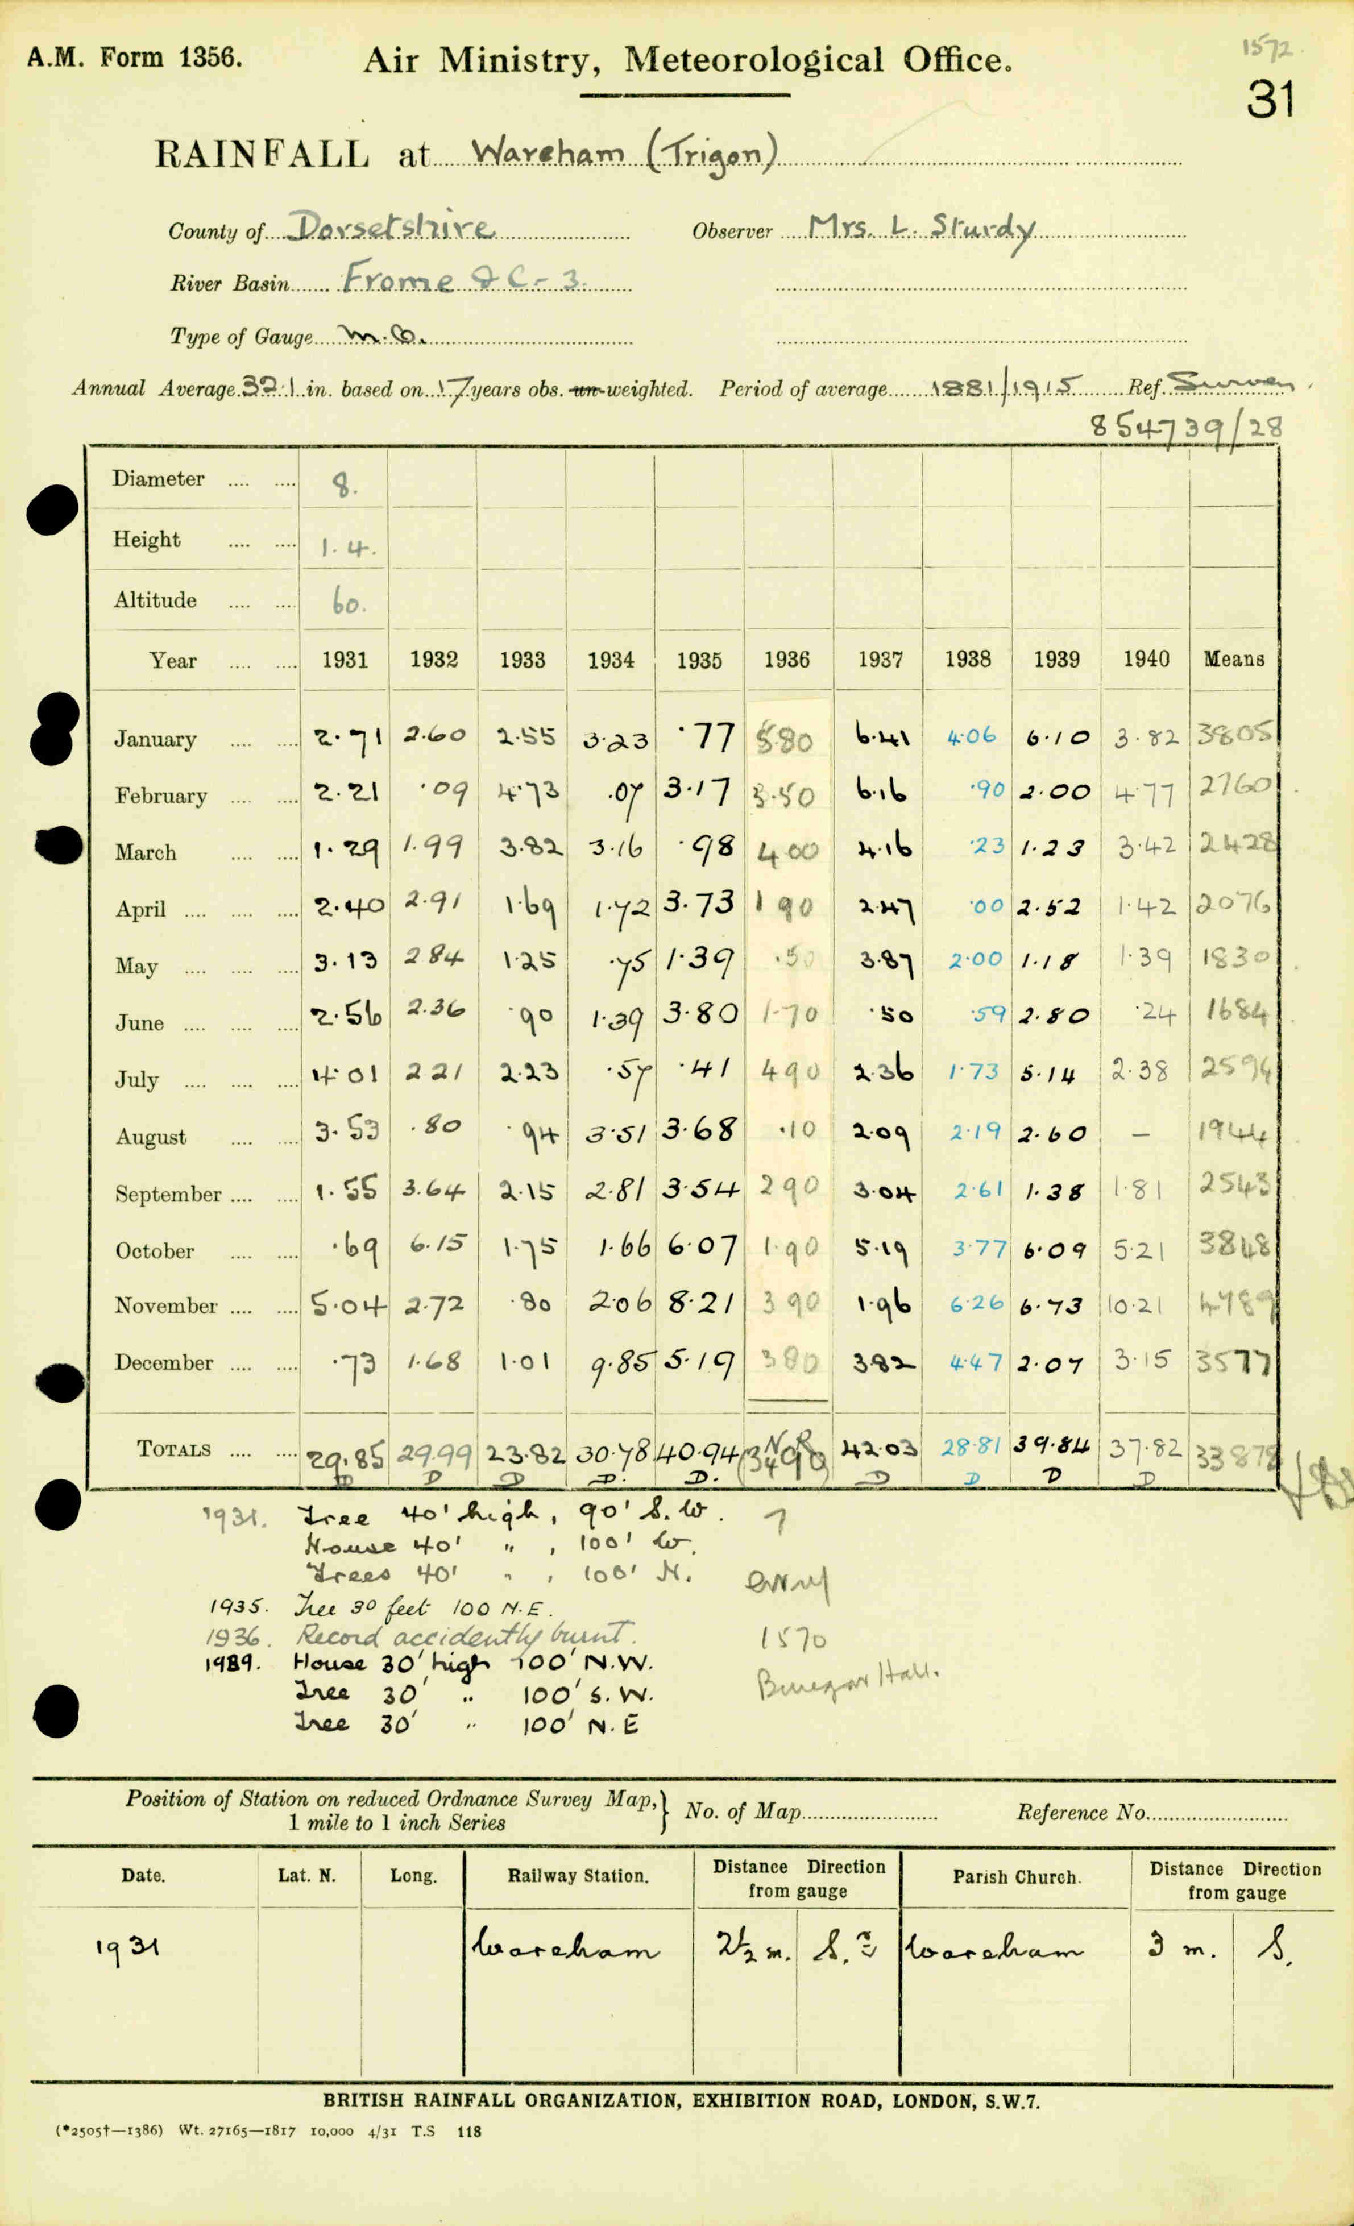 A.M. Form 1356.
Air Ministry, Meteorological Office.
1572
31
RAINFALL at Wareham (Trigon)
County of Dorsetshire Observer Mrs. L. Sturdy
River Basin Frome &C - 3.
Type of Gauge M.O.
Annual Average 32.1 in. based on 17 years obs. un-weighted. Period of average 1881/1915 Ref. Survey
854739/28
Diameter .... .... 8.
Height .... .... 1.4.
Altitude .... .... 60.
Year .... .... 1931 1932 1933 1934 1935 1936 1937 1938 1939 1940 Means
January .... .... 2.71 2.60 2.55 3.23 .77 5.80 6.41 4.06 6.10 3.82 3805
February .... .... 2.21 .09 4.73 .07 3.17 3.50 6.16 .90 2.00 4.77 2760
March .... .... 1.29 1.99 3.82 3.16 .98 4.00 4.16 .23 1.23 3.42 2428
April .... .... .... 2.40 2.91 1.69 1.72 3.73 1.90 2.47 .00 2.52 1.42 2076
May .... .... .... 3.13 2.84 1.25 .75 1.39 .50 3.87 2.00 1.18 1.39 1830
June .... .... .... 2.56 2.36 .90 1.39 3.80 1.70 .50 .59 2.80 .24 1684
July .... .... .... 4.01 2.21 2.23 .57 .41 4.90 2.36 1.73 5.14 2.38 2594
August .... .... 3.53 .80 .94 3.51 3.68 .10 2.09 2.19 2.60 — 1944
September .... .... 1.55 3.64 2.15 2.81 3.54 2.90 3.04 2.61 1.38 1.81 2543
October .... .... .69 6.15 1.75 1.66 6.07 1.90 5.19 3.77 6.09 5.21 3848
November .... .... 5.04 2.72 .80 2.06 8.21 3.90 1.96 6.26 6.73 10.21 4789
December .... .... .73 1.68 1.01 9.85 5.19 3.80 3.82 4.47 2.07 3.15 3577
TOTALS .... .... 29.85 29.99 23.82 30.78 40.94 N.R. (34.90) 42.03 28.81 39.84 37.82 33878
D D D D. D. D D D D
1931. Tree 40' high, 90' S.W.
House 40' " , 100' W.
Trees 40' " , 100' N.
1935. Tree 30 feet 100 N.E.
1936. Record accidently burnt. 1570
1939. House 30' high 100' N.W.
Tree 30' " 100' S.W. Hall.
Tree 30' " 100' N.E
Position of Station on reduced Ordnance Survey Map,} No. of Map Reference No.
1 mile to 1 inch Series
Date. Lat. N. Long. Railway Station. Distance Direction from gauge Parish Church. Distance Direction from gauge
1931 Wareham 2½ m. S. Wareham 3 m. S.
BRITISH RAINFALL ORGANIZATION, EXHIBITION ROAD, LONDON, S.W.7.
(*2505†—1386) Wt. 27165—1817 10,000 4/31 T.S 118